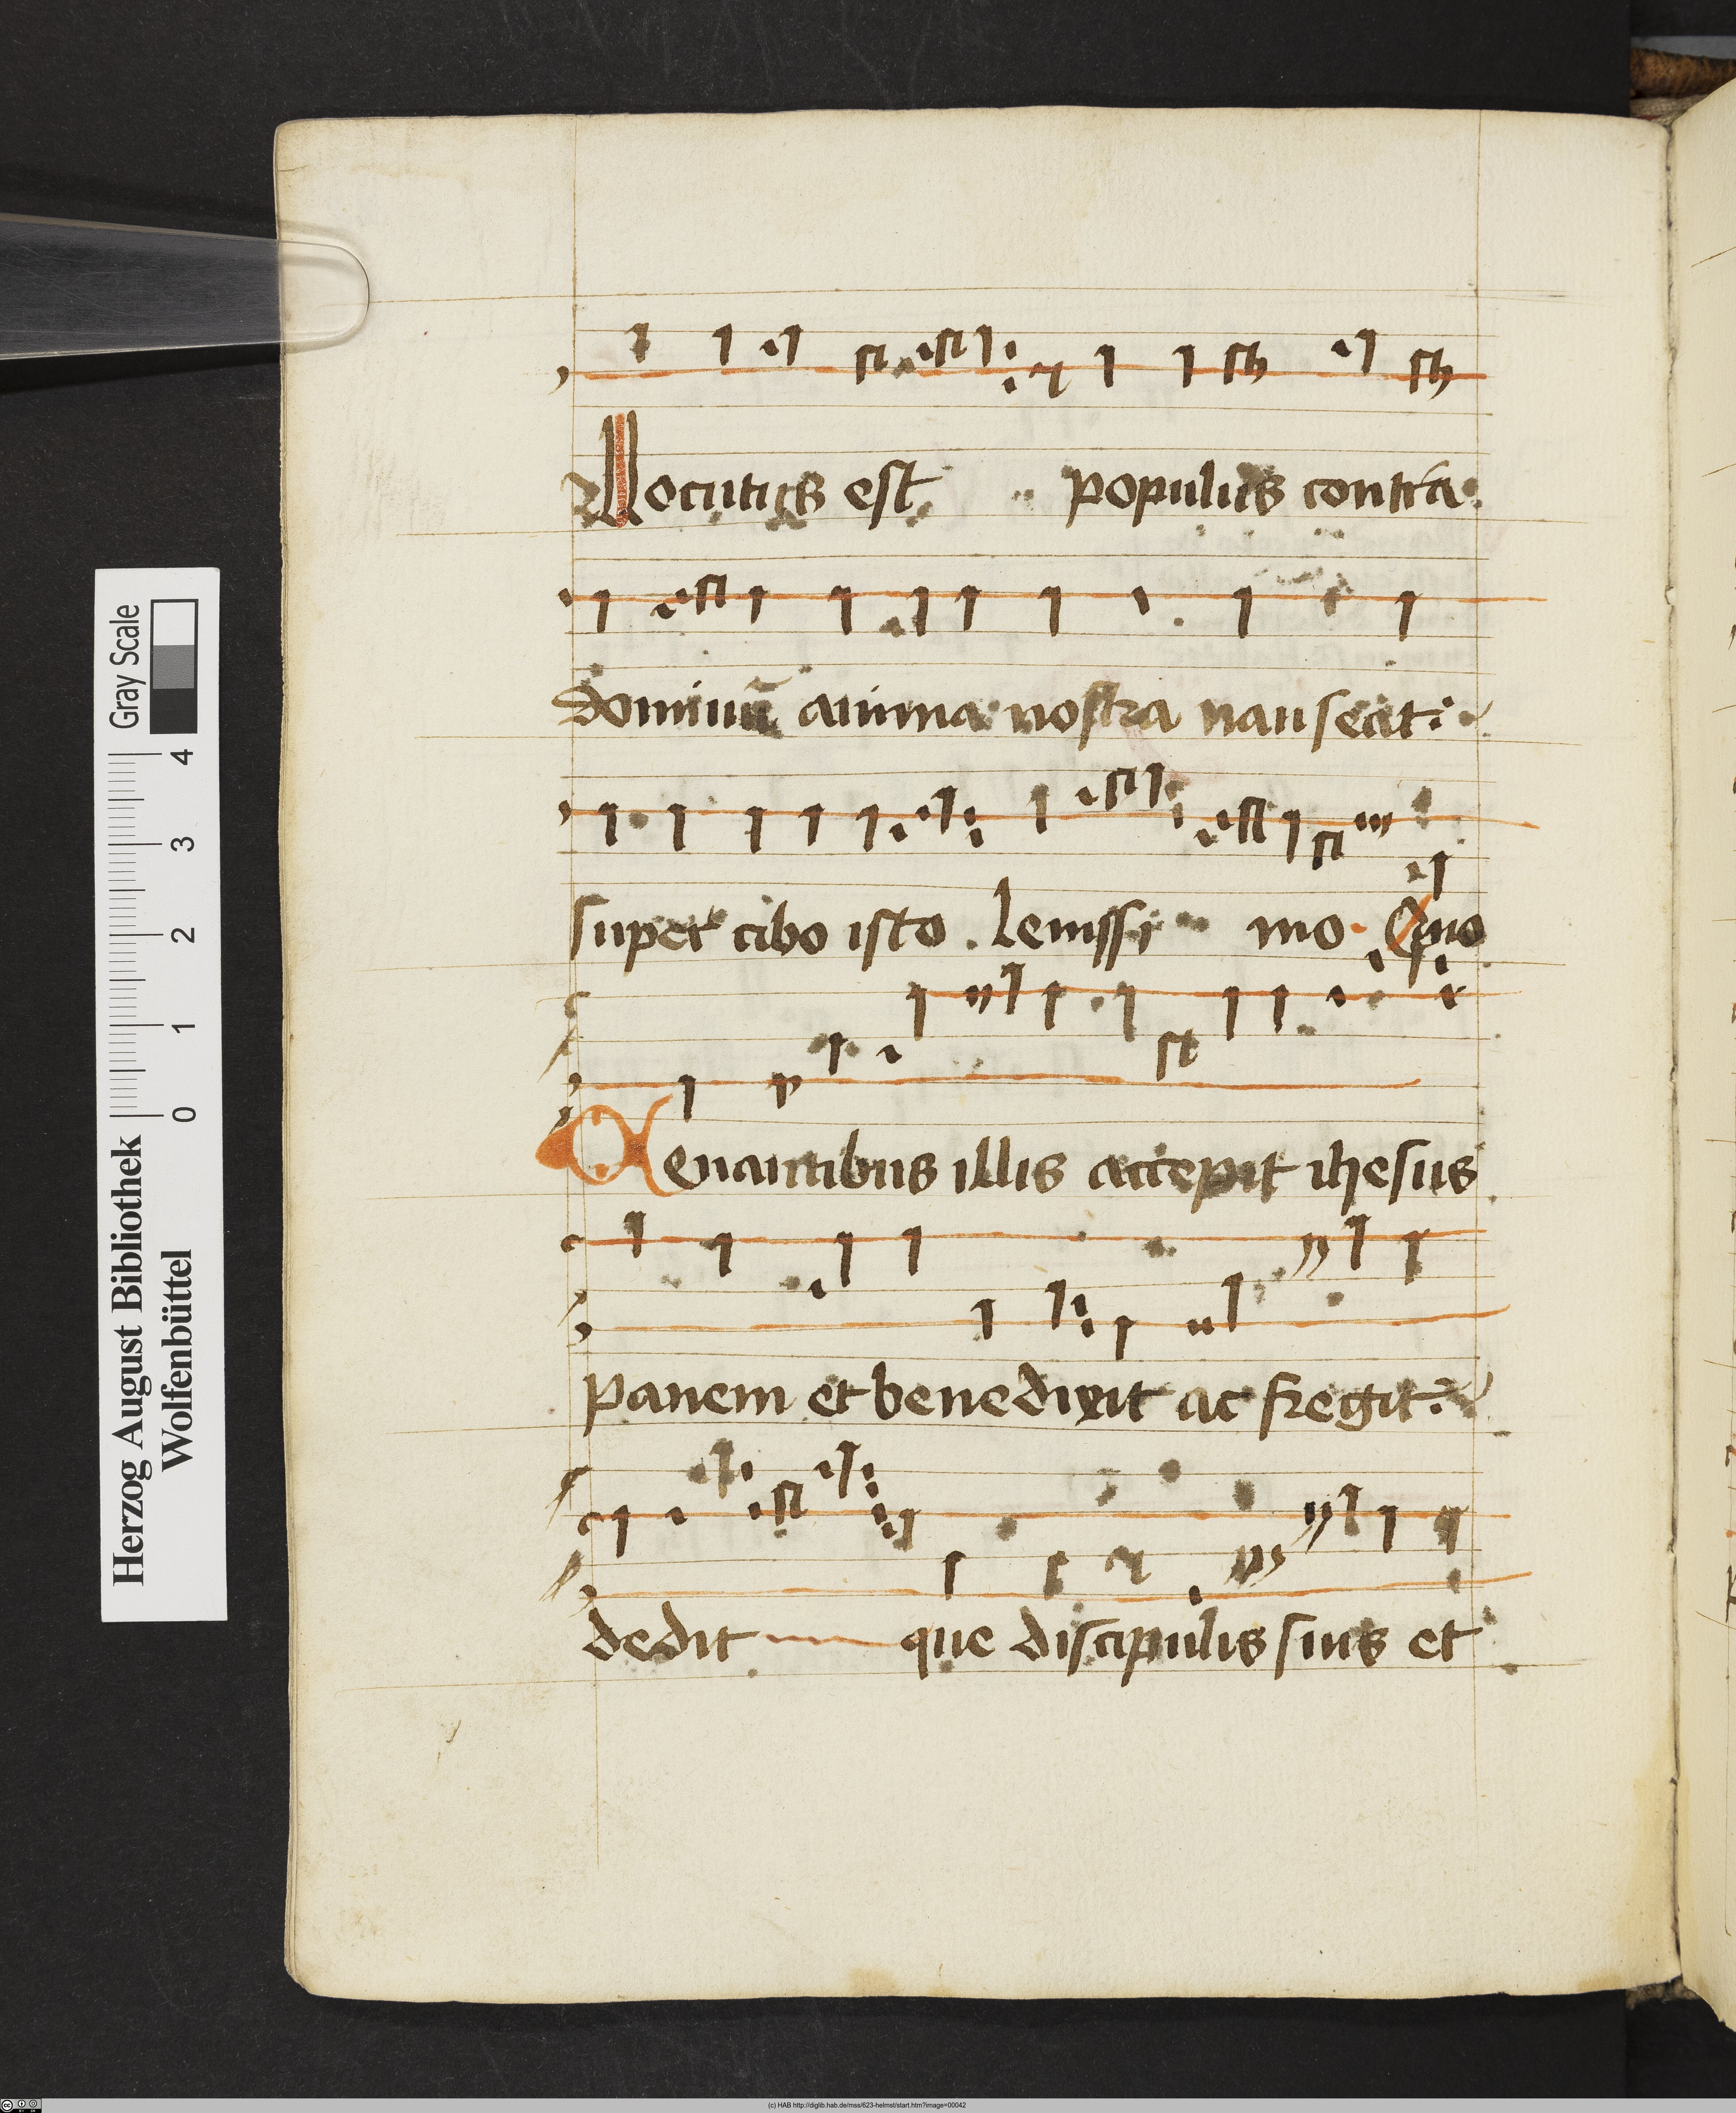 Locutus est populus contra
dominū anima nostra nauseat
super cibo isto . Leuissi mo . Quo
Cenantibus illis accepit ihesus
panem et benedixit ac fregit
dedit que discipulis suis et
Herzog August Bibliothek
Wolfenbüttel
0 1 2 3 4
Gray Scale
(c) HAB http://diglib.hab.de/mss/623-helmst/start.htm?image=00042